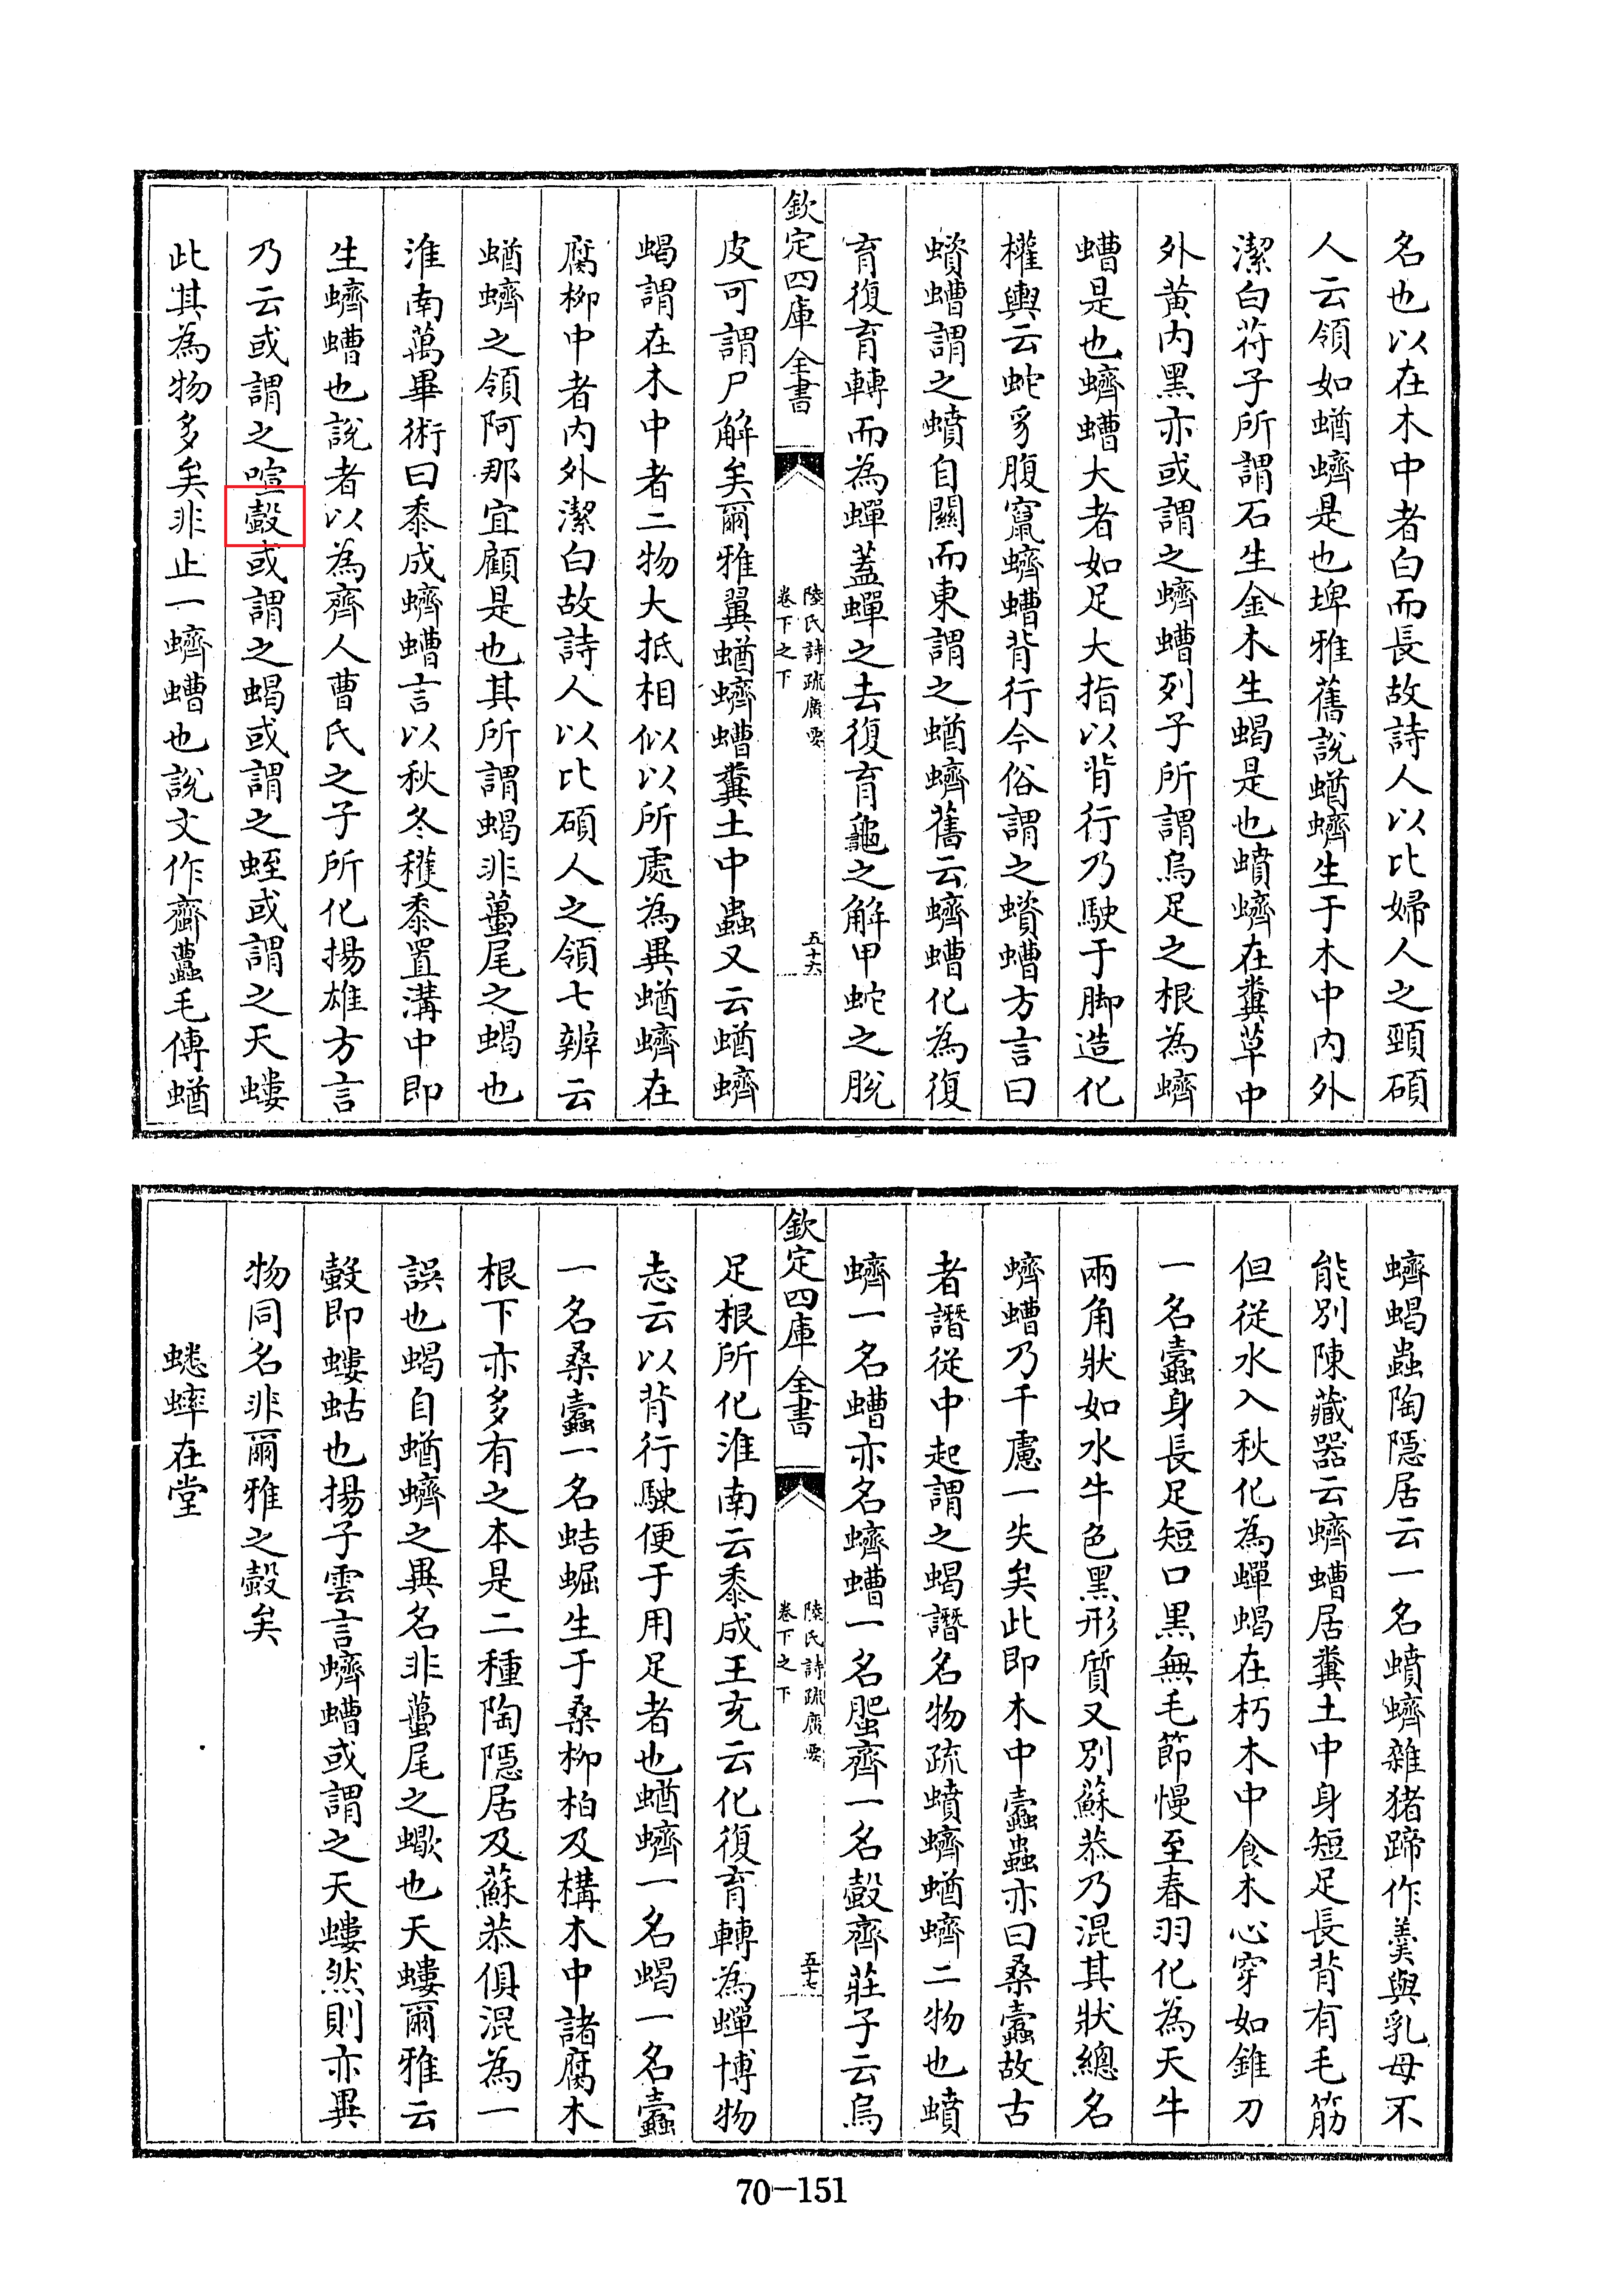 名也以在木中者白而長故詩人以比婦人之頸碩
人云領如蝤蠐是也埤雅舊說蝤蠐生于木中内外
潔白苻子所謂石生金木生蝎是也蟦蠐在糞草中
外黄内黑亦或謂之蠐螬列子所謂烏足之根為蠐
螬是也蠐螬大者如足大指以背行乃駛于脚造化
權輿云蛇豸腹竄蠐螬背行今俗謂之蠀螬方言曰
蠀螬謂之蟦自關而東謂之蝤蠐舊云蠐螬化為復
育復育轉而為蟬蓋蟬之去復育龜之解甲蛇之脫
欽定四庫全書
陸氏詩疏廣要
卷下之下
五十六
皮可謂尸解矣爾雅翼蝤蠐螬糞土中蟲又云蝤蠐
蝎謂在木中者二物大抵相似以所處為異蝤蠐在
腐栁中者内外潔白故詩人以比碩人之領七辨云
蝤蠐之領阿那宜顧是也其所謂蝎非蠆尾之蝎也
淮南萬畢術曰黍成蠐螬言以秋冬穫黍置溝中即
生蠐螬也說者以為齊人曹氏之子所化揚雄方言
乃云或謂之喧㲉或謂之蝎或謂之蛭或謂之天螻
此其為物多矣非止一蠐螬也說文作齎䘆毛傳蝤
蠐蝎蟲陶隱居云一名蟦蠐雜猪蹄作羮與乳母不
能別陳藏器云蠐螬居糞土中身短足長背有毛筋
但從水入秋化為蟬蝎在朽木中食木心穿如錐刀
一名蠹身長足短口黑無毛節慢至春羽化為天牛
兩角狀如水牛色黑形質又別蘇恭乃混其狀總名
蠐螬乃千慮一失矣此即木中蠹蟲亦曰桑蠹故古
者譖從中起謂之蝎譖名物疏蟦蠐蝤蠐二物也蟦
蠐一名螬亦名蠐螬一名䏢齊一名㲉齊莊子云烏
欽定四庫全書
陸氏詩疏廣要
卷下之下
五十七
足根所化淮南云黍成王充云化復育轉為蟬博物
志云以背行駛便于用足者也蝤蠐一名蝎一名蠹
一名桑蠹一名蛣蝠生于桑栁柏及構木中諸腐木
根下亦多有之本是二種陶隱居及蘇恭俱混為一
誤也蝎自蝤蠐之異名非蠆尾之蠍也天螻爾雅云
㲉即螻蛄也揚子雲言蠐螬或謂之天螻然則亦異
物同名非爾雅之㲉矣
蟋蟀在堂
70-151